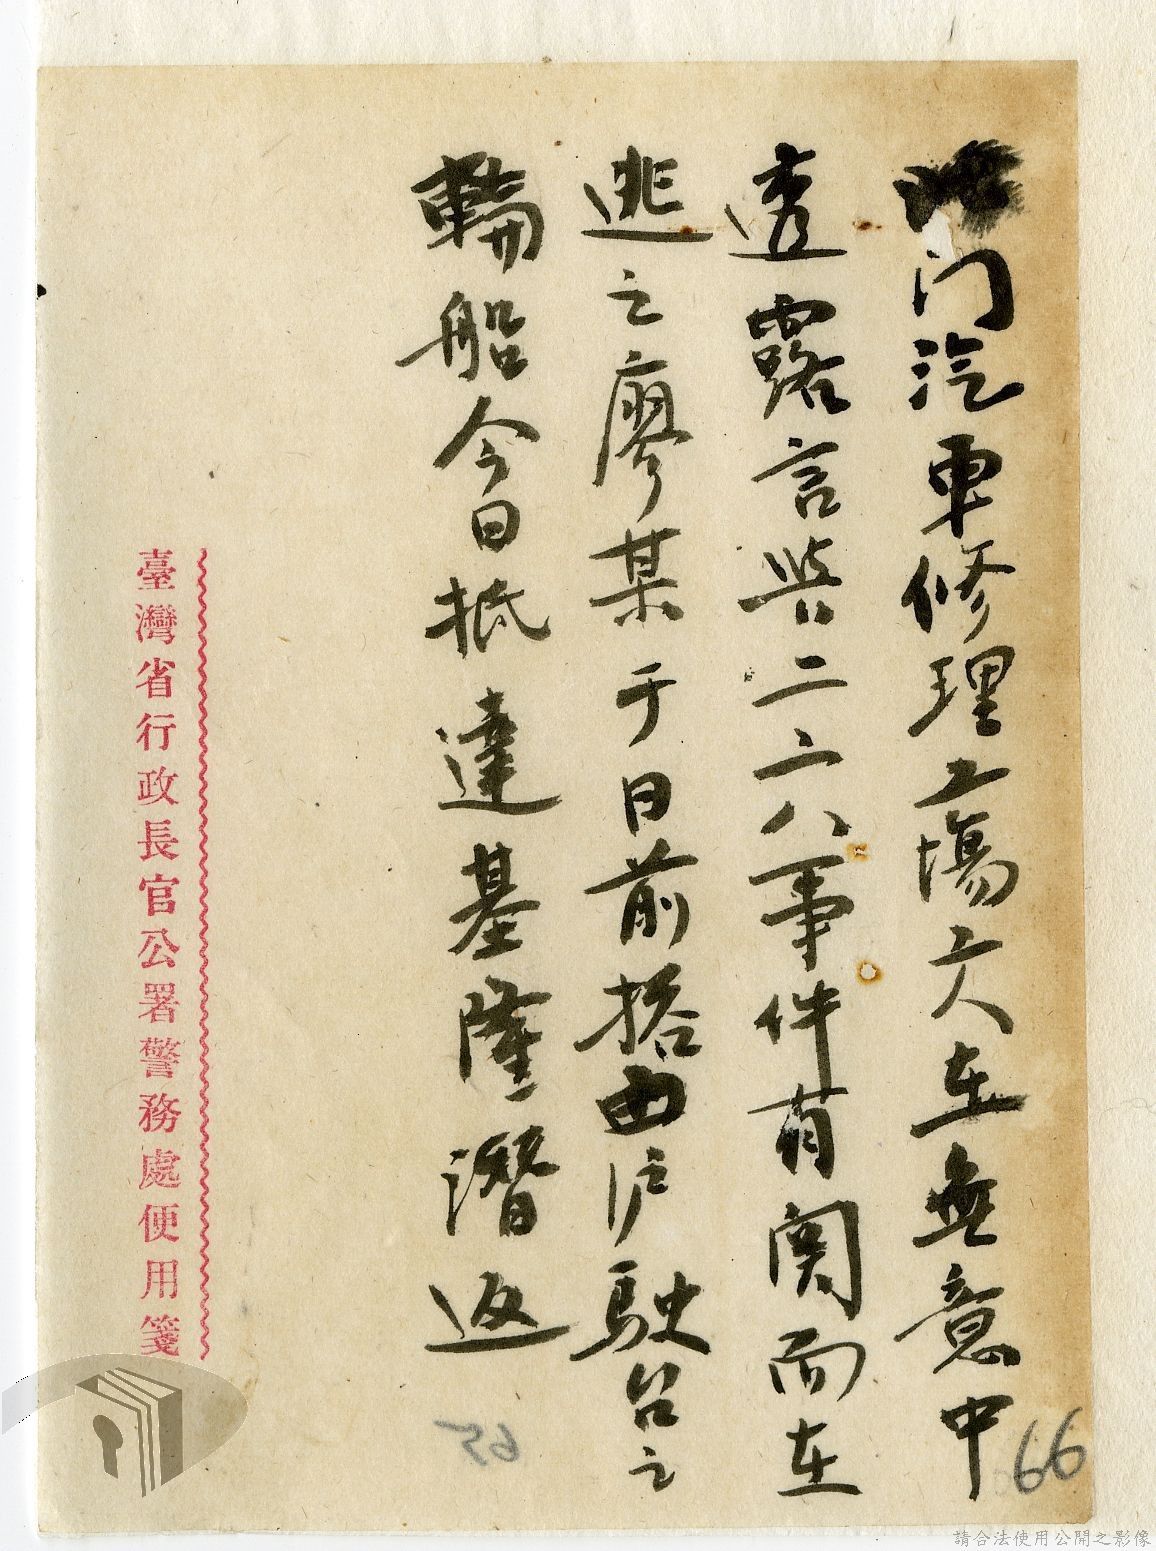 门汽車修理工場工人在無意中
透露言與二二八事件有関而在
逃之廖某于日前搭由沪駛台之
輪船今日抵達基隆潛返
臺灣省行政長官公署警務處便用箋
66
65
請合法使用公開之影像